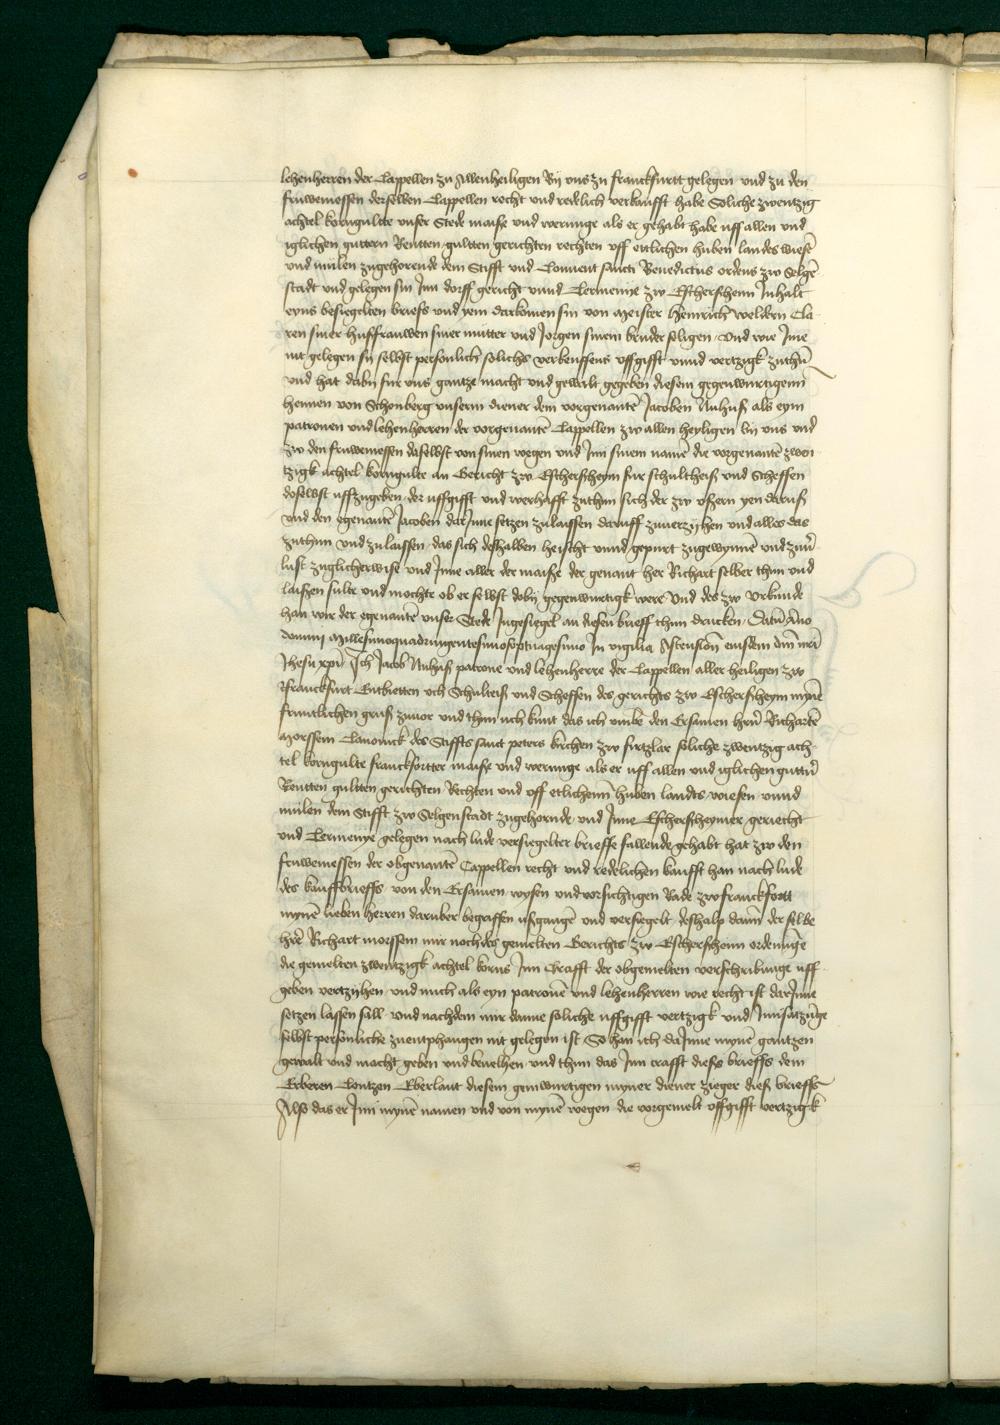 lehenherren der Cappellen zu Allenheiligen By uns zu franckfurtt gelegen und zu den
fruwemessen derselben Cappellen recht und redelich verkaufft habe Soliche zwentzig
achtel korngultte unser Stede maisse und werunge als er gehabt habe uff allen und
iglichen guttern Rentten gultten gerichten rechten uff ettlichen huben landes wiese
und mulen zugehorende dem Stifft und Convent sanct Benedictus ordens zw Selge
stadt und gelegen sin Inn dorff gericht unnd Termenye zw Eschersheym Inhalt
eyns besiegelten brieffs und yem darkomen sin von meister Heinrich weldern Cla
ren siner husffrauwen siner mutter und Jorgen sinem bruder seligen Und wie Ime
nit gelegen sy selbst personlich solichs verkeuffens uffgifft unnd vertzigk zuthun
und hat daby fur uns gantze macht und gewalt gegeben diesem gegenwurtigenn
hennen von Schonberg unserm diener dem vorgenante Jacoben Nuhuss als eym
patronen und lehenherren der vorgenante Cappellen zw allen heyligen by uns und
zw den fruwemessen daselbst von sinen wegen und Inn sinem name die vorgenante zwen
tzigk achtel korngulte an Gericht zw Eschersheym fur schultheiss und Scheffen
doselbst uffzugeben der uffgifft und werhafft zuthun sich der zw ussern yen daruss
und den egenante Jacoben darInne setzen zulaissen daruff zuuerzyhen und alles das
zuthun und zulaissen das sich desshalben heischt unnd gepurt zugewynne und zuuer
lust zuglicherwise und Inne aller der maisse der genant her Richart selber thun und
laissen sulte und mochte ob er selbst doby gegenwurtigk were Und des zw Urkunde
han wir der egenante unser Stede Ingesiegel an diesen brieff thun drucken Datu Ano
domini Millesimoquadringentesimoseptuagesimo In vigilia Ascension eiusdem dni nri
Jhesu xpi Ich Jacob Nuhuss patrone und lehenherre der Cappellen aller heiligen zw
Franckfurt Entbietten uch Schulteiss und Scheffen des gerichts zw Eschersheym myne
fruntlichen grus zuuor und thun uch kunt das ich umbe den Ersamen hrn Richarte
Morssem Canonick des Stiffts sant peters kirchen zw fritzlar soliche zwentzig ach
tel korngulte franckfortter maisse und werunge als er uff allen und iglichen guttn
Rentten gultten gerichten Rechten und uff etlichenn huben landts wiesen unnd
mulen dem Stifft zw Selgenstadt zugehornde und Inne Eschersheymer geriecht
und Termenye gelegen nach lude versiegelter brieffe fallende gehabt hat zw den
fruwemessen der obgenante Cappellen recht und redelichen kaufft han nach lude
des kauffbrieffs von den Ersamen wysen und vorsichtigen Rade zw franckfortt
myne lieben herren daruber begriffen ussgange und versiegelt deshalp dann der selbe
here Richart morssem mir noch des gemelten Gerichts zw Eschersheym ordenunge
die gemelten zwentzigk achtel korns Inn Crafft der obgemelten verschribunge uff
geben vertzyhen und mich als eyn patrone und lehenherren wie recht ist darInne
setzen lassen sall und nachdem mir danne soliche uffgifft vertzigk und Innsatzunge
selbst personliche zuentphangen nit gelegen ist So han ich daInne myne gantzen
gewalt und macht geben und beuelhen und thun das Inn crafft diess brieffs dem
Erberen Contzen Eberlant diesem geinwurtigen myner diener zieger diess brieffs
Also das er Inn myne namen und von myne wegen die vorgemelt uffgifft vertzigk